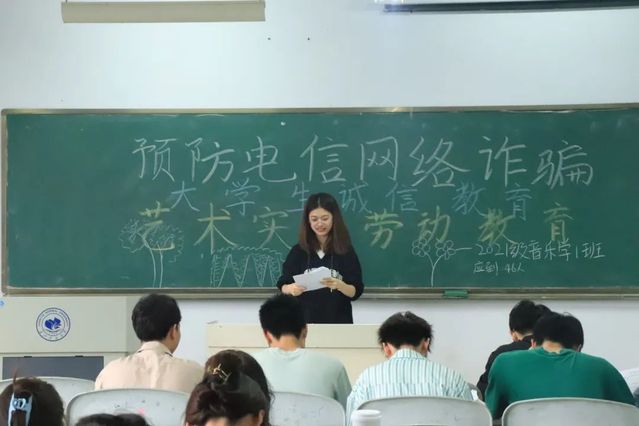 预防电信网络诈骗
大学生诚信教育
艺术实 劳动教育
2021级音乐学1班
应到 46人